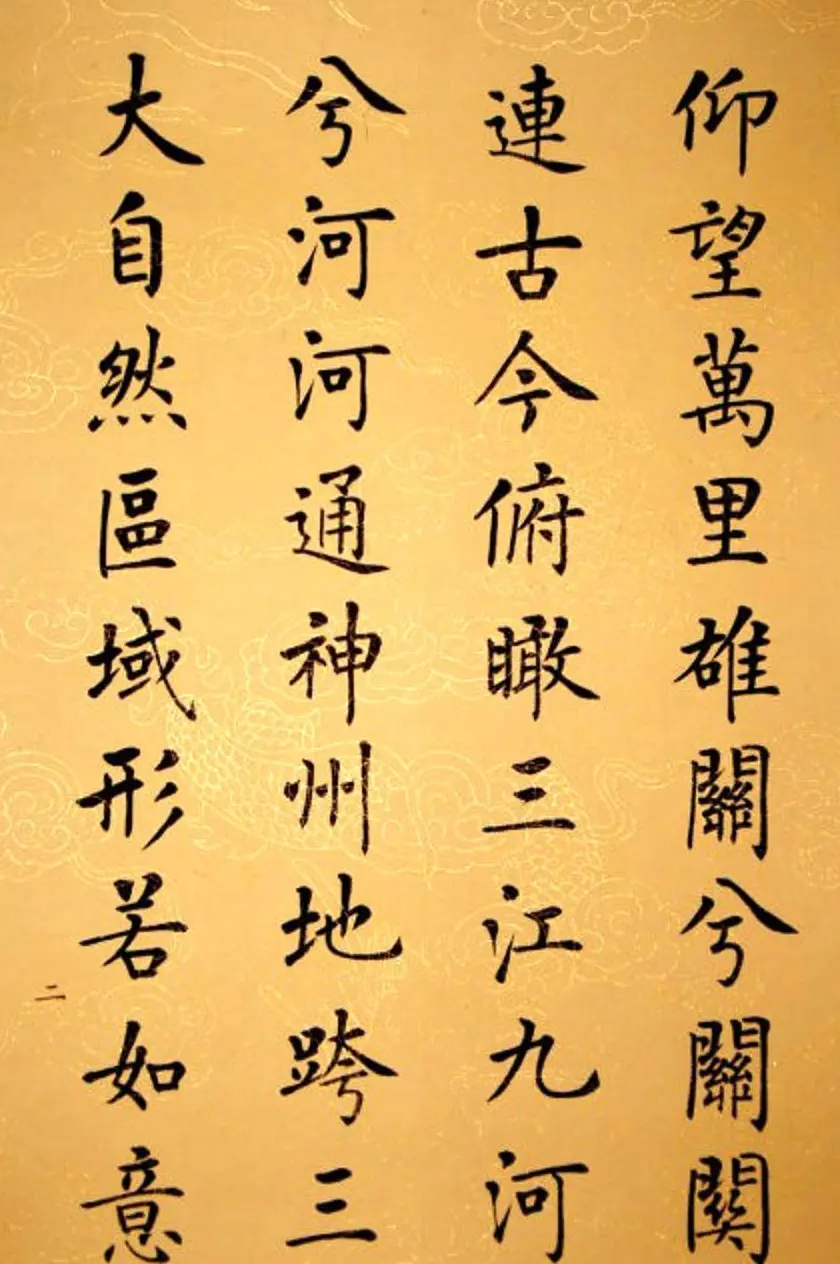 仰望萬里雄關兮關關
連古今俯瞰三江九河
兮河河通神州地跨三
大自然區域形若如意
二